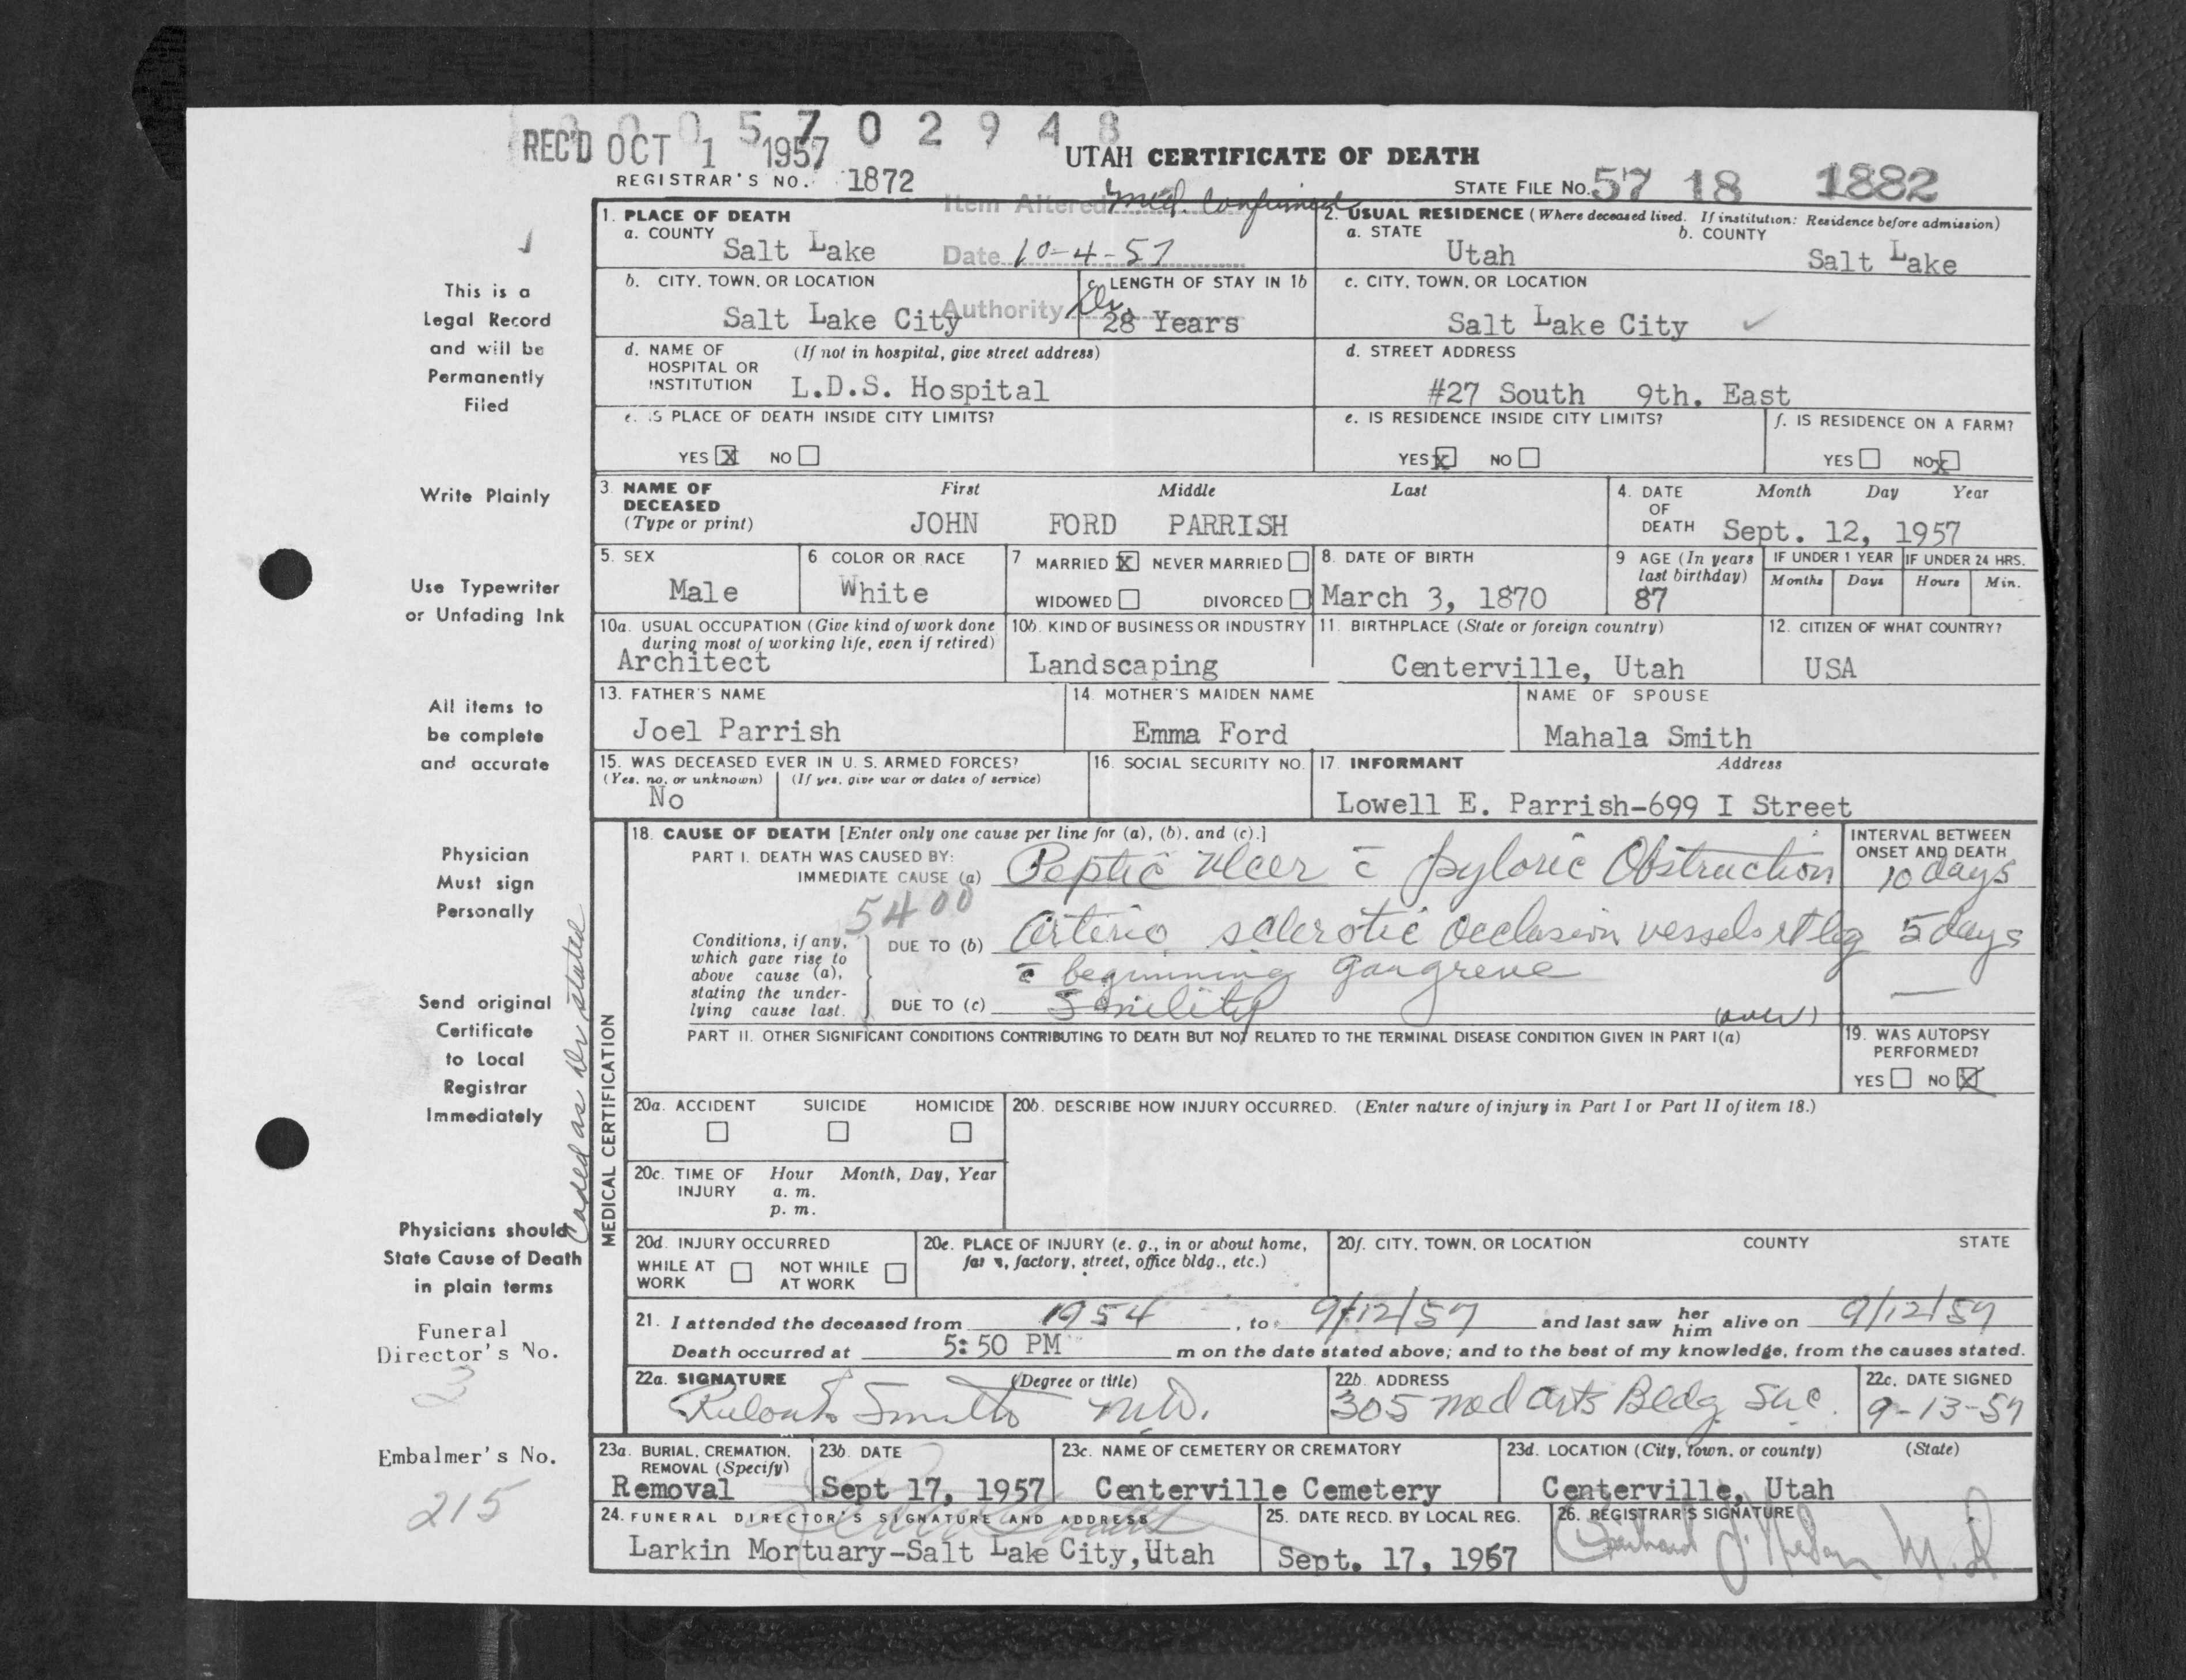 0 0 5 7 0 2 9 4 8
REC'D OCT 1 1957
UTAH CERTIFICATE OF DEATH
REGISTRAR'S NO. 1872
STATE FILE NO. 57 18 1882
Item Altered med. confirmed
Date 10-4-57
Authority Dr.
1. PLACE OF DEATH
a. COUNTY
Salt Lake
2. USUAL RESIDENCE (Where deceased lived. If institution: Residence before admission)
a. STATE
Utah
b. COUNTY
Salt Lake
b. CITY, TOWN, OR LOCATION
Salt Lake City
c. LENGTH OF STAY IN 1b
28 Years
c. CITY, TOWN, OR LOCATION
Salt Lake City
d. NAME OF HOSPITAL OR INSTITUTION (If not in hospital, give street address)
L.D.S. Hospital
d. STREET ADDRESS
#27 South 9th. East
e. IS PLACE OF DEATH INSIDE CITY LIMITS?
YES X NO
e. IS RESIDENCE INSIDE CITY LIMITS?
YES X NO
f. IS RESIDENCE ON A FARM?
YES NO X
3. NAME OF DECEASED (Type or print)
First Middle Last
JOHN FORD PARRISH
4. DATE OF DEATH
Month Day Year
Sept. 12, 1957
5. SEX
Male
6 COLOR OR RACE
White
7 MARRIED X NEVER MARRIED
WIDOWED DIVORCED
8. DATE OF BIRTH
March 3, 1870
9 AGE (In years last birthday)
87
IF UNDER 1 YEAR
Months Days
IF UNDER 24 HRS.
Hours Min.
10a. USUAL OCCUPATION (Give kind of work done during most of working life, even if retired)
Architect
10b. KIND OF BUSINESS OR INDUSTRY
Landscaping
11. BIRTHPLACE (State or foreign country)
Centerville, Utah
12. CITIZEN OF WHAT COUNTRY?
USA
13. FATHER'S NAME
Joel Parrish
14. MOTHER'S MAIDEN NAME
Emma Ford
NAME OF SPOUSE
Mahala Smith
15. WAS DECEASED EVER IN U. S. ARMED FORCES?
(Yes, no, or unknown) (If yes, give war or dates of service)
No
16. SOCIAL SECURITY NO.
17. INFORMANT Address
Lowell E. Parrish-699 I Street
MEDICAL CERTIFICATION
18. CAUSE OF DEATH [Enter only one cause per line for (a), (b), and (c).]
PART I. DEATH WAS CAUSED BY:
IMMEDIATE CAUSE (a) Peptic Ulcer c̄ pyloric Obstruction
INTERVAL BETWEEN ONSET AND DEATH
10 days
5400
Conditions, if any, which gave rise to above cause (a), stating the underlying cause last.
DUE TO (b) Arterio sclerotic occlusion vessels rt leg
5 days
c̄ beginning gangrene
DUE TO (c) Senility
(over)
PART II. OTHER SIGNIFICANT CONDITIONS CONTRIBUTING TO DEATH BUT NOT RELATED TO THE TERMINAL DISEASE CONDITION GIVEN IN PART I(a)
19. WAS AUTOPSY PERFORMED?
YES NO X
20a. ACCIDENT SUICIDE HOMICIDE
20b. DESCRIBE HOW INJURY OCCURRED. (Enter nature of injury in Part I or Part II of item 18.)
20c. TIME OF INJURY
Hour Month, Day, Year
a. m.
p. m.
20d. INJURY OCCURRED
WHILE AT WORK NOT WHILE AT WORK
20e. PLACE OF INJURY (e. g., in or about home, farm, factory, street, office bldg., etc.)
20f. CITY, TOWN, OR LOCATION COUNTY STATE
21. I attended the deceased from 1954, to 9/12/57 and last saw her him alive on 9/12/57
Death occurred at 5:50 PM m on the date stated above; and to the best of my knowledge, from the causes stated.
22a. SIGNATURE (Degree or title)
Smith M.D.
22b. ADDRESS
305 Med Arts Bldg SLC.
22c. DATE SIGNED
9-13-57
23a. BURIAL, CREMATION, REMOVAL (Specify)
Removal
23b. DATE
Sept 17, 1957
23c. NAME OF CEMETERY OR CREMATORY
Centerville Cemetery
23d. LOCATION (City, town, or county) (State)
Centerville, Utah
24. FUNERAL DIRECTOR'S SIGNATURE AND ADDRESS
Larkin Mortuary-Salt Lake City, Utah
25. DATE RECD. BY LOCAL REG.
Sept. 17, 1957
26. REGISTRAR'S SIGNATURE
M.D.
This is a
Legal Record
and will be
Permanently
Filed
Write Plainly
Use Typewriter
or Unfading Ink
All items to
be complete
and accurate
Physician
Must sign
Personally
Send original
Certificate
to Local
Registrar
Immediately
Coded as Dr stated
Physicians should
State Cause of Death
in plain terms
Funeral
Director's No.
3
Embalmer's No.
215